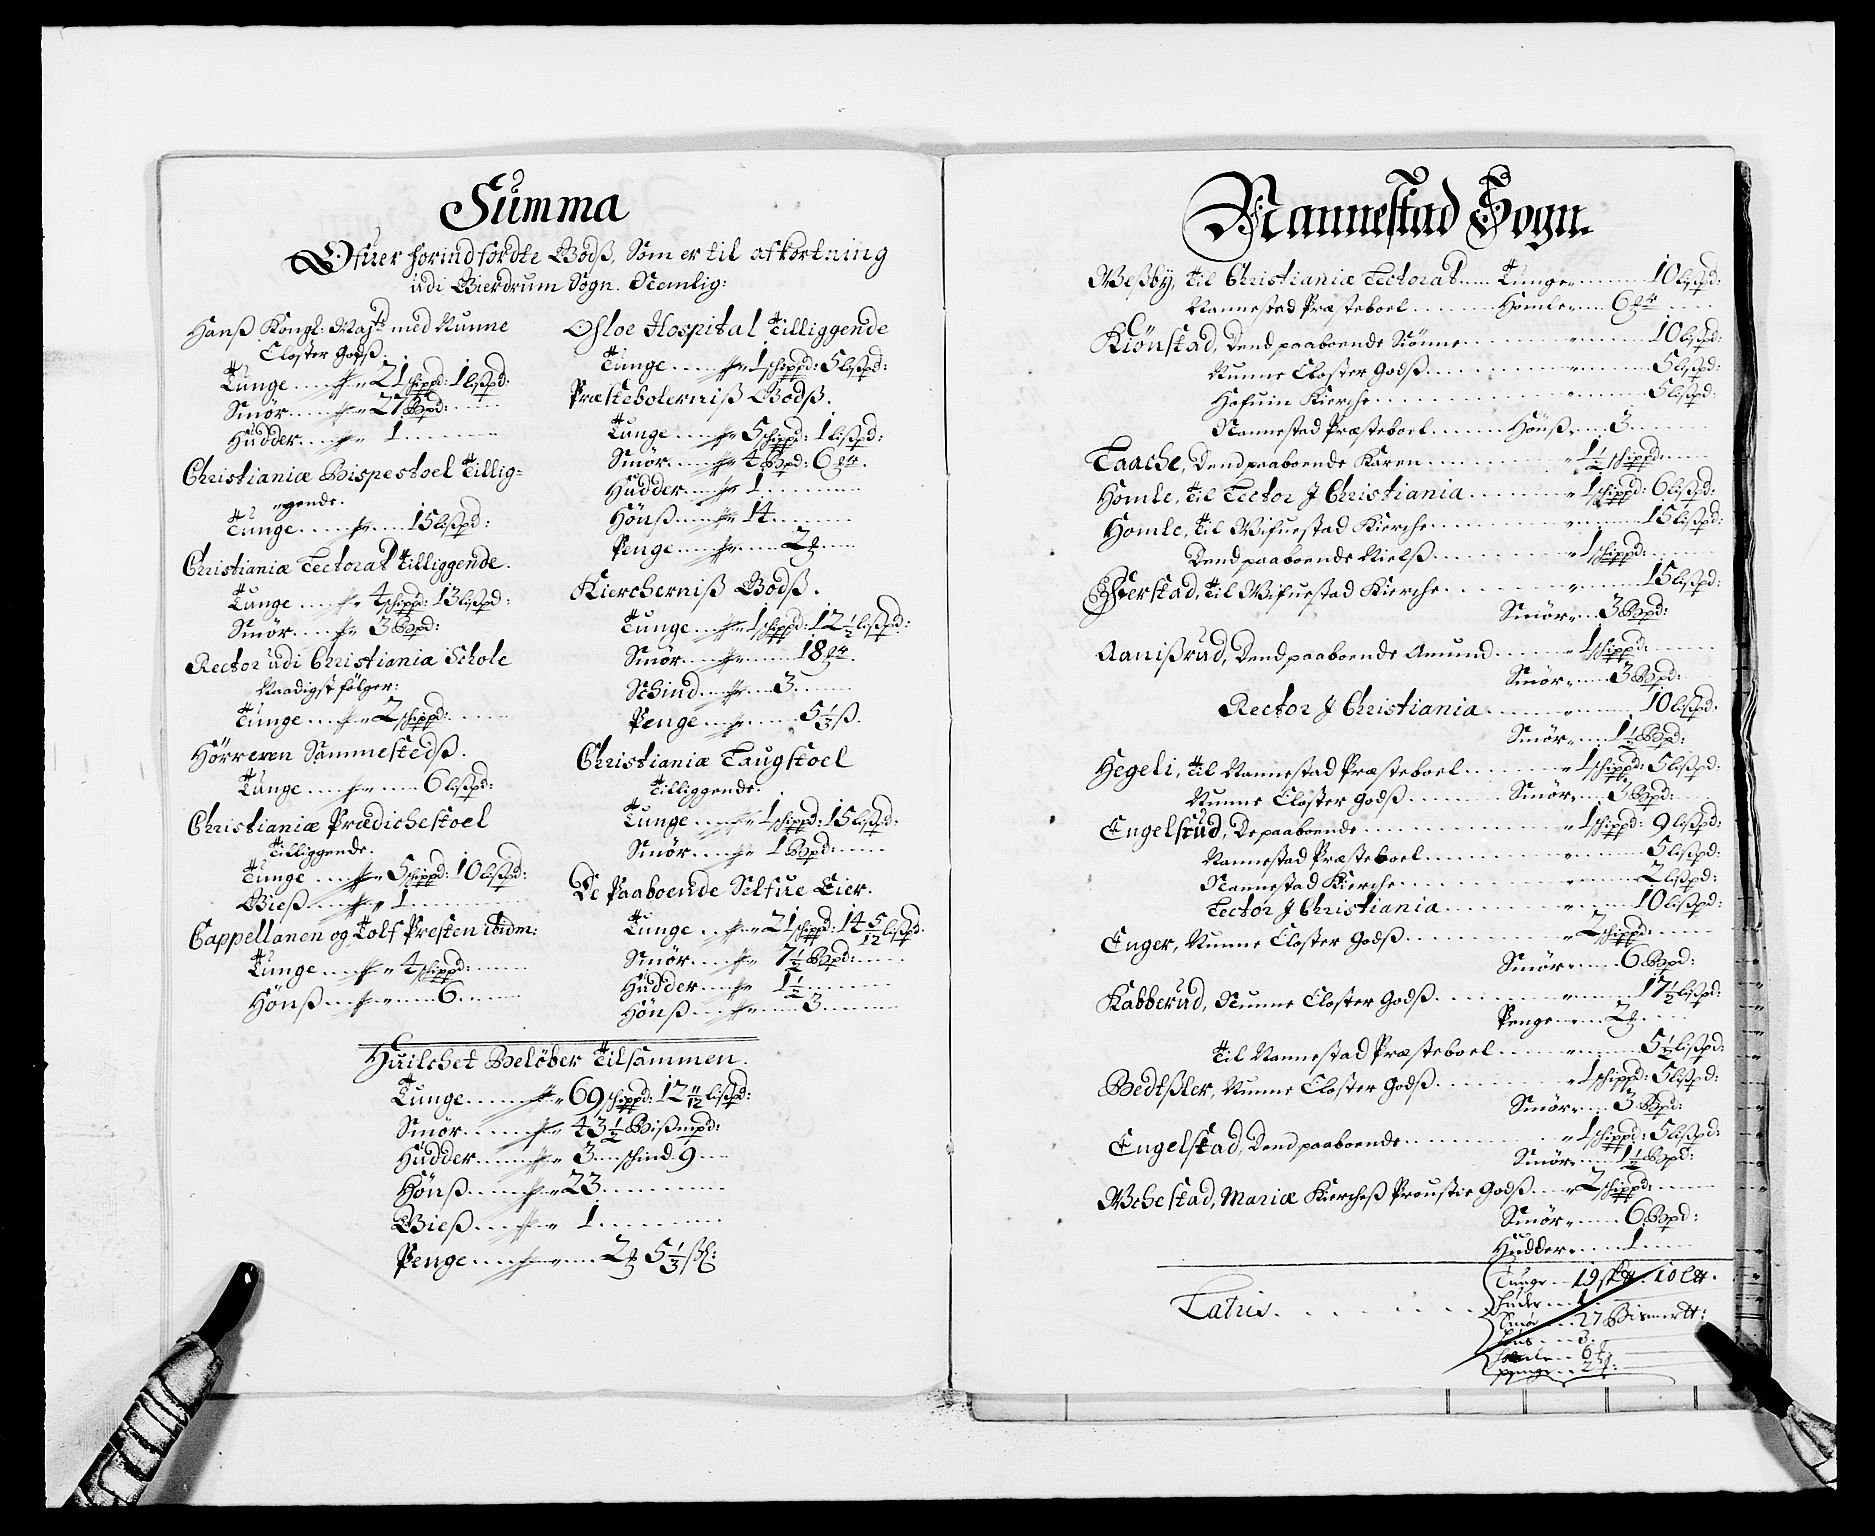 Summa
Ofuer forindførdte Godß, Som er til afkortning
udi Gierdrum Sogn. Nemlig:
Hanß Kongl: Mayst: med Nunne
Closter Godß.
Tunge 21 schippd: 1 lißpd:
Smör 27 Bpd:
Hüdder 1
Christianiæ Bispestoel Tillig-
gende.
Tunge 15 lißpd:
Christianiæ Lectorat Tilliggende.
Tunge 4 schippd: 13 lißpd:
Smör 3 Bpd:
Rector udi Christiania Schole
Naadigst følger:
Tunge 2 schippd:
Hörreren Sammestedß.
Tunge 6 lißpd:
Christianiæ Prædichestoel
Tilliggende.
Tunge 5 schippd: 10 lißpd:
Gieß 1
Cappellanen og Tolf Presten ibidm:
Tunge 4 schippd:
Hönß 6
Osloe Hospital Tilliggende
Tunge 1 schippd: 5 lißpd:
Præstebolerniß Godß.
Tunge 5 schippd: 1 lißpd:
Smör 4 Bpd: 6
Hüdder 1
Hönß 14
Penge 2
Kircherniß Godß.
Tunge 1 schippd: 12 1/2 lißpd:
Smör 18
Schind 3
Penge 5 1/3 ß.
Christianiæ Laugstoel
Tilliggende.
Tunge 1 schippd: 15 lißpd:
Smör 1 Bpd:
De Paaboende Selfue Eier.
Tunge 21 schippd: 14 5/12 lißpd:
Smör 7 1/2 Bpd:
Hüdder 1 1/2
Hönß 3
Huilchet Beløber Tilsammen.
Tunge 69 schippd: 12 11/12 lißpd:
Smör 43 1/2 Bißmpd:
Hüdder 3 schind 9
Hönß 23
Gieß 1
Penge 2 5 1/3 ß:
Nannestad Sogn.
Weßby, til Christianiæ Lectorat Tunge 10 lißpd:
Nannestad Præsteboel Homle 6
Kiönstad, Dend paaboende 10 lißpd:
Nunne Closter Godß 5 lißpd:
Hofuin Kierche 5 lißpd:
Nannestad Præsteboel Hönß 3
Laache, Dend paaboende Karen 1 1/2 schippd:
Homle, til Lector J Christiania 1 schippd: 6 lißpd:
Homle, til Wifuestad Kierche 15 lißpd:
Dend paaboende Nielß 1 schippd:
til Wifuestad Kierche 15 lißpd:
Smör 3 Bpd:
Aanißrud, Dend paaboende Amund 1 schippd:
Smör 3 Bpd:
Rector J Christiania 10 lißpd:
Smör 1 1/2 Bpd:
Hegeli, til Nannestad Præsteboel 1 schippd: 5 lißpd:
Nunne Closter Godß Smör 3 Bpd:
Engelsrud, De paaboende 1 schippd: 9 lißpd:
Nannestad Præsteboel 5 lißpd:
Nannestad Kierche 2 lißpd:
Lector J Christiania 10 lißpd:
Enger, Nunne Closter Godß 2 schippd:
Smör 6 Bpd:
Kabberud, Nunne Closter Godß 17 1/2 lißpd:
Penge 2
til Nannestad Præsteboel 5 1/2 lißpd:
Bedtßler, Nunne Closter Godß 1 schippd: 5 lißpd:
Smör 3 Bpd:
Engelstad, Dend paaboende 1 schippd: 5 lißpd:
Smör 1 1/2 Bpd:
Mariæ Kiercheß Proustie Godß 2 schippd:
Smör 6 Bpd:
Hüdder 1
Latris
Tunge 19 10
Huder 1
Smör 27
Höns 3
Homle 6
Penge 2